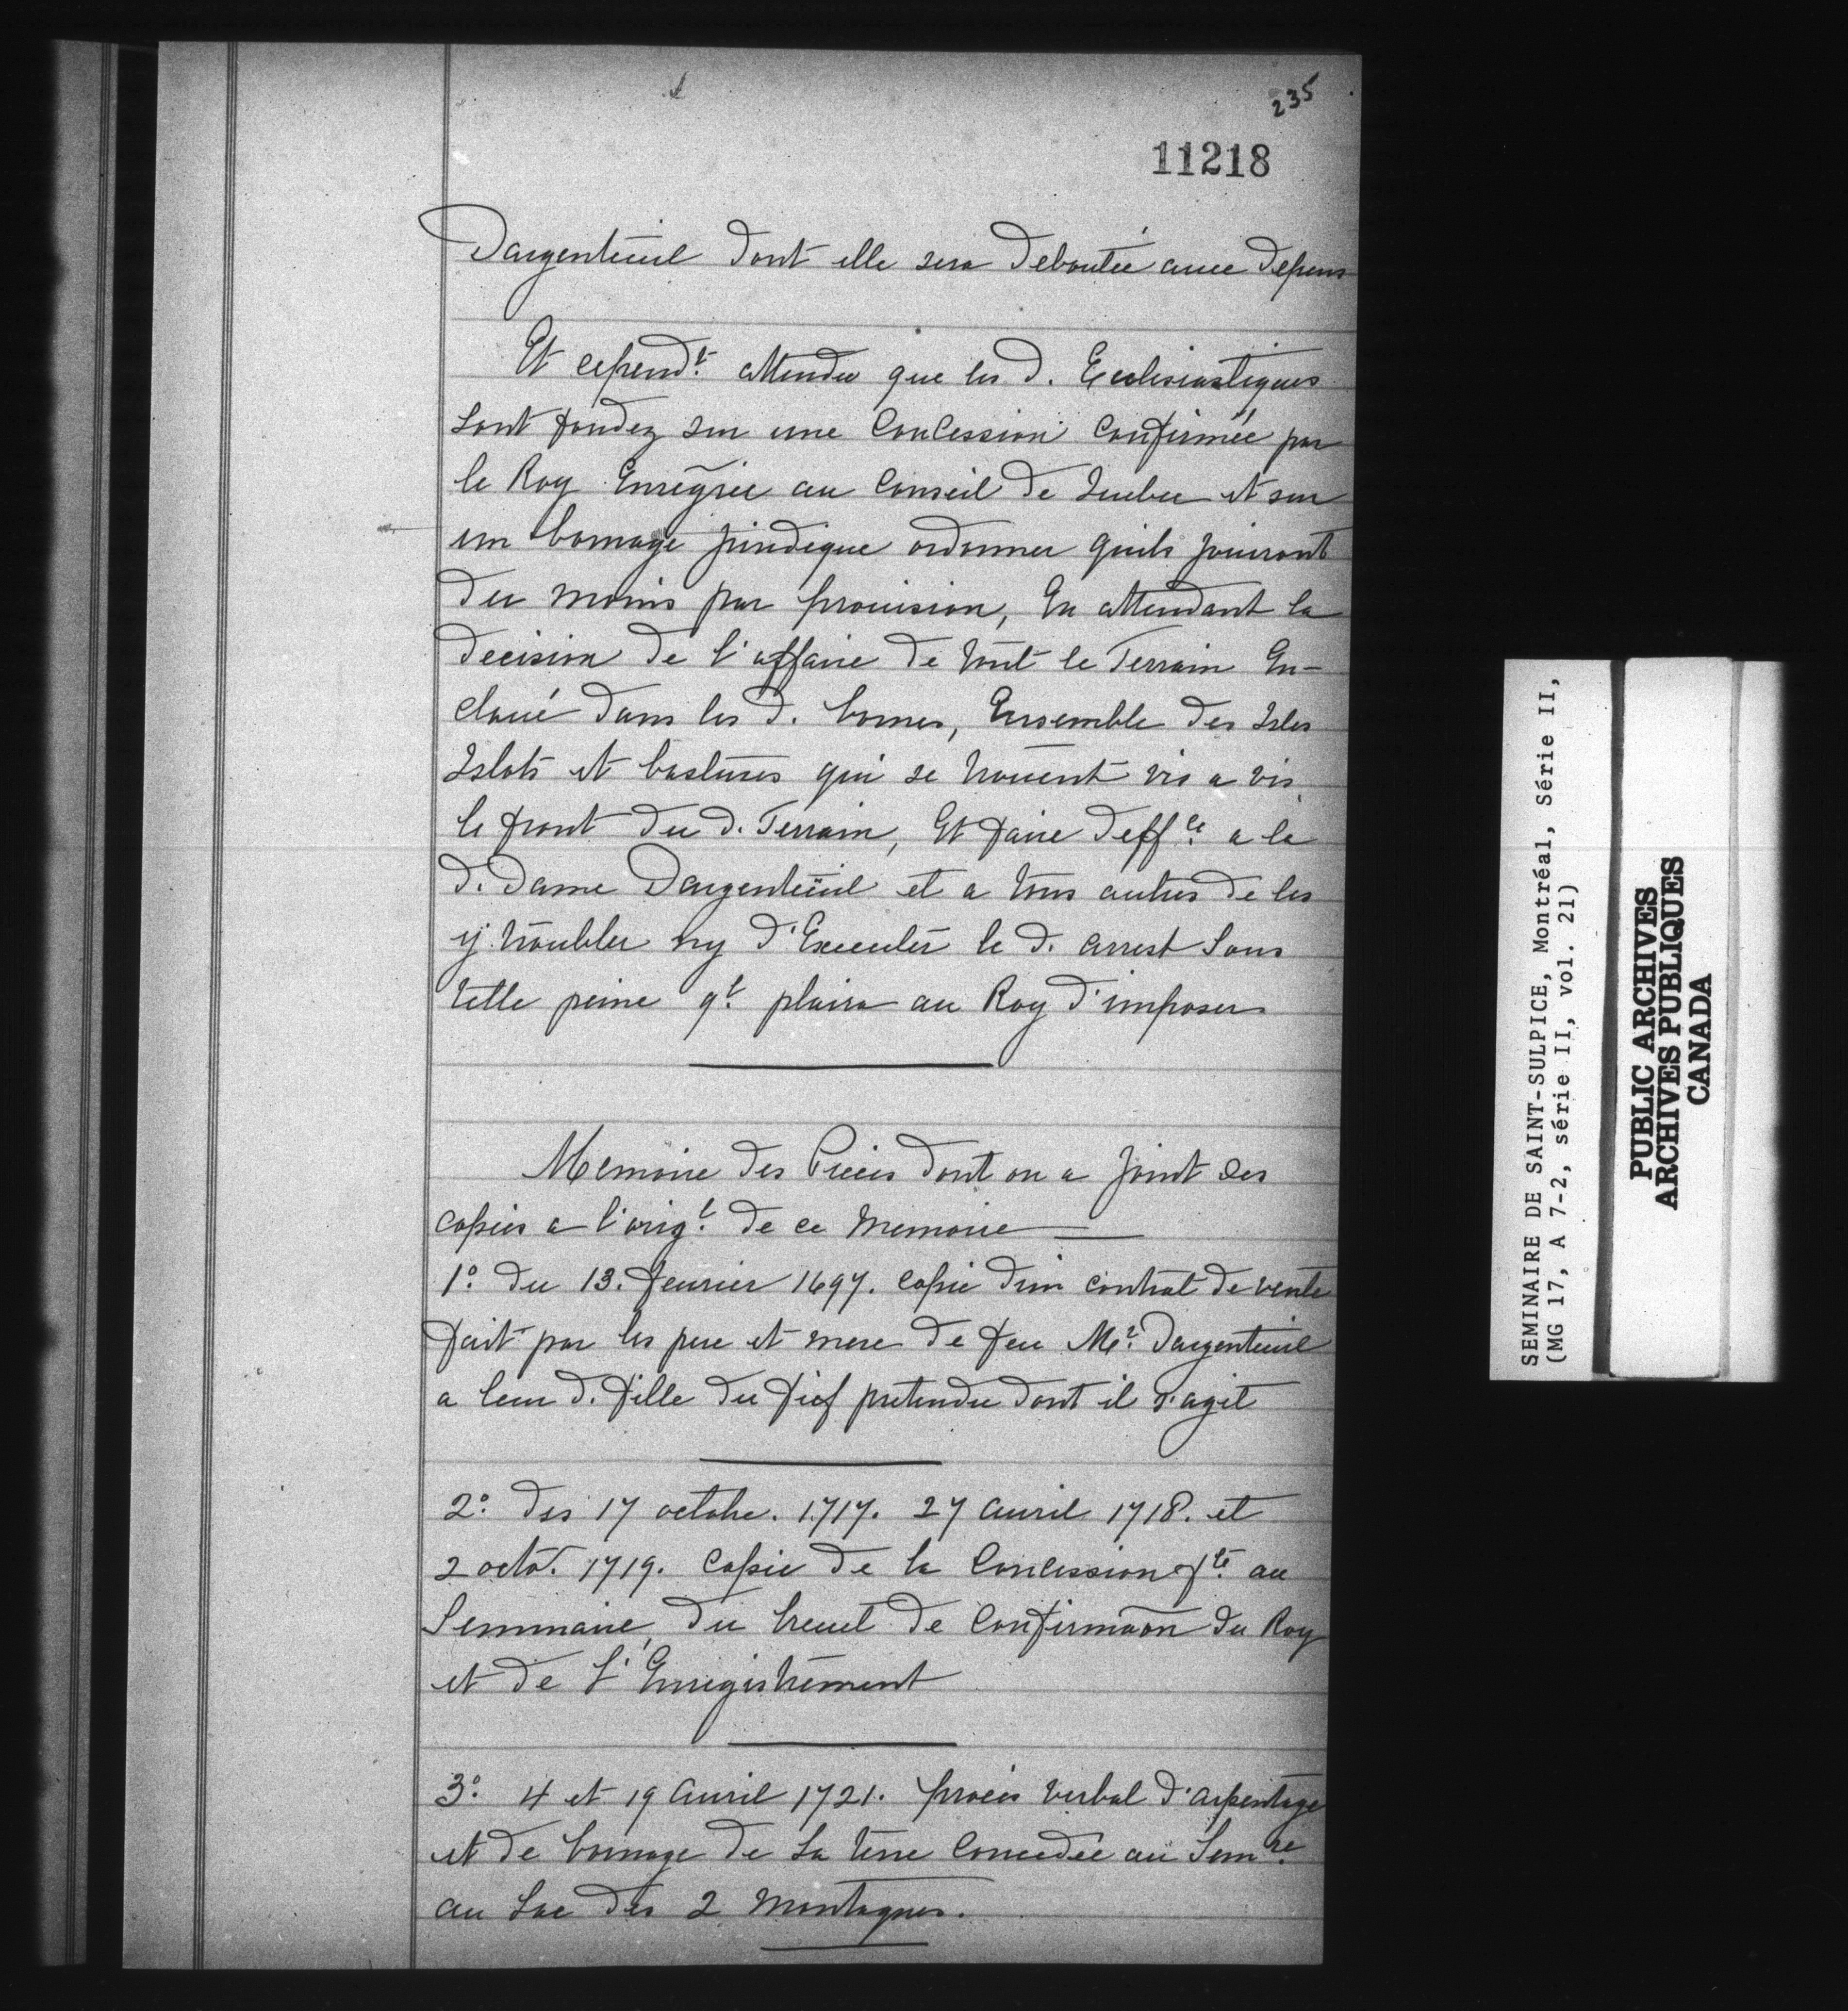 235
11218
Dargenteüil dont elle sera deboutée avec depens
Et cepend.t attendu que les d. Ecclesiastiques
sont fondez sur une Concession Confirmée par
le Roy Enregrée au Conseil de Quebec et sur
un bornage juridique ordonner quils jouiront
du moins par prouision, En attendant la
decision de l'affaire de tout le Terrain En-
claué dans les d. bornes, Ensemble des Isles
Islots et bastures qui se trouvent vis a vis
le front du d. Terrain, Et faire deff.ce a la
d. Dame Dargenteüil et a tous autres de les
ÿ troubler ny d'Executer le d. arrest Sous
telle peine q.l plaira au Roy d'imposer
Memoire des Pieces dont on a joint des
copies a l'orig.l de ce memoire
1.o du 13. feurier 1697. copie d'un contrat de vente
fait par les pere et mere de feu M.r Dargenteuil
a leur d. fille du fief pretendu dont il s'agit
2.o des 17 octobre. 1717. 27 auril 1718. et
2 octo. 1719. Copie de la Concession f.te au
Seminaire, du breuet de Confirmaõn du Roy
et de l'Enregistrement
3.o 4 et 19 Auril 1721. procès verbal d'arpentage
et de bornage de La terre Concedée au Sem.re
au Lac des 2 montagnes.
SEMINAIRE DE SAINT-SULPICE, Montréal, Série II,
(MG 17, A 7-2, série II, vol. 21)
PUBLIC ARCHIVES
ARCHIVES PUBLIQUES
CANADA